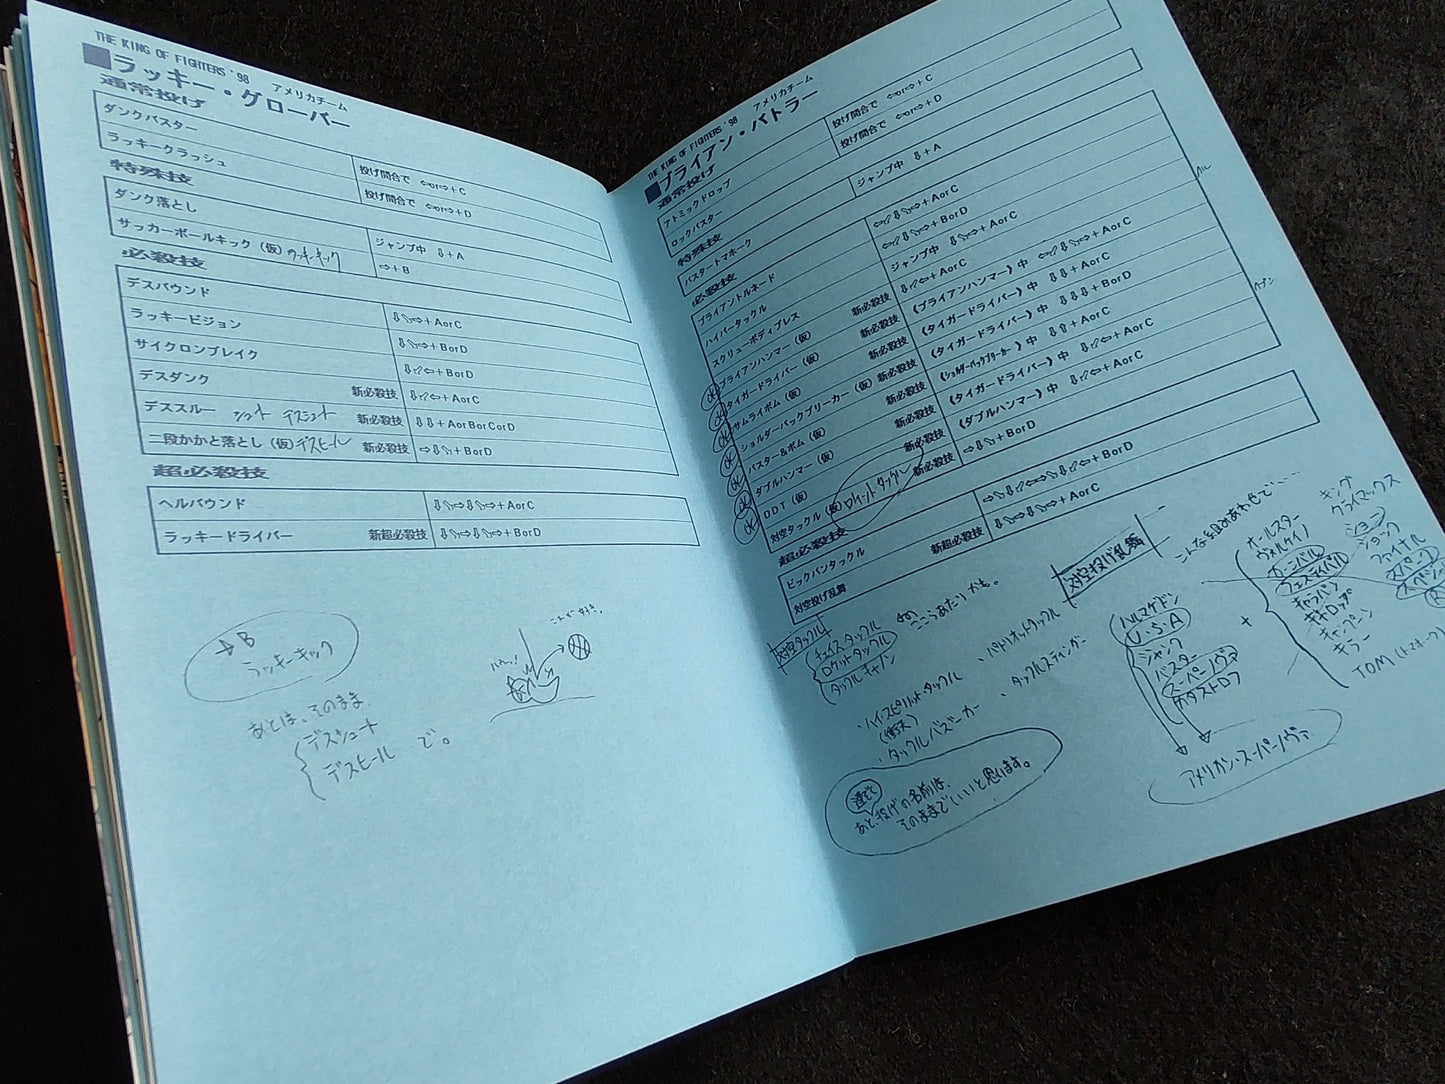 THE KING OF FIGHTERS '98 アメリカチーム
■ラッキー・グローバー
通常投げ
ダンクバスター 投げ間合で ⇦or⇨+C
ラッキークラッシュ 投げ間合で ⇦or⇨+D
特殊技
ダンク落とし ジャンプ中 ⇩+A
サッカーボールキック(仮) ラッキーキック ⇨+B
必殺技
デスバウンド ⇩⬂⇨+AorC
ラッキービジョン ⇩⬂⇨+BorD
サイクロンブレイク ⇩⬃⇦+BorD
デスダンク 新必殺技 ⇩⬃⇦+AorC
デススルー シュート デスシュート 新必殺技 ⇩⇩+AorBorCorD
二段かかと落とし(仮) デスヒール 新必殺技 ⇨⇩⬂+BorD
超必殺技
ヘルバウンド ⇩⬂⇨⇩⬂⇨+AorC
ラッキードライバー 新超必殺技 ⇩⬂⇨⇩⬂⇨+BorD
→B
ラッキーキック
あとは、そのまま
デスシュート
デスヒール で。
THE KING OF FIGHTERS '98 アメリカチーム
■ブライアン・バトラー
通常投げ
アトミックドロップ 投げ間合で ⇦or⇨+C
ロックバスター 投げ間合で ⇦or⇨+D
特殊技
バスタートマホーク ジャンプ中 ⇩+A
必殺技
ブライアントルネード ⇦⬃⇩⬂⇨+AorC
ハイパータックル ⇦⬃⇩⬂⇨+BorD
スクリューボディプレス ジャンプ中 ⇩⬂⇨+AorC
ブライアンハンマー(仮) 新必殺技 ⇩⬃⇦+AorC
タイガードライバー(仮) 新必殺技 《ブライアンハンマー》中 ⇦⬃⇩⬂⇨+AorC
サムライボム(仮) 新必殺技 《タイガードライバー》中 ⇩⇩+AorC
ショルダーバックブリーカー(仮) 新必殺技 《タイガードライバー》中 ⇩⇩⇩+BorD
バスター&ボム(仮) 新必殺技 《ショルダーバックブリーカー》中 ⇩⇧+AorC
ダブルハンマー(仮) 新必殺技 《タイガードライバー》中 ⇩⬃⇦+AorC
DDT(仮) 新必殺技 《ダブルハンマー》中 ⇩⬃⇦+AorC
対空タックル(仮) ロケットタックル 新必殺技 ⇨⇩⬂+BorD
超必殺技
ビッグバンタックル ⇨⬂⇩⬃⇦⇨⬂⇩⬃⇦+BorD
対空投げ乱舞 新超必殺技 ⇩⬂⇨⇩⬂⇨+AorC
OK
OK
OK
OK
OK
OK
OK
対空タックル
チェイスタックル
ロケットタックル
タックルキャノン
ここらあたりかも。
・ハイスピリットタックル
(衝天)
・タックルバズーカー
・パトリオットタックル
・タックルスティンガー
あと、投げの名前は、
そのままでいいと思います。
対空投げ乱舞
こんな組みあわせで…
ハルマゲドン
U・S・A
ジャンク
バスター
スーパーノヴァ
カタストロフ
+
オールスター
ヴォルケイノ
カーニバル
フェスティバル
キャラバン
ギャロップ
キャンペーン
キラー
TOM(トマホーク)
キング
クライマックス
ショー
ショック
ファイナル
スパーク
アメリカン・スーパーノヴァ